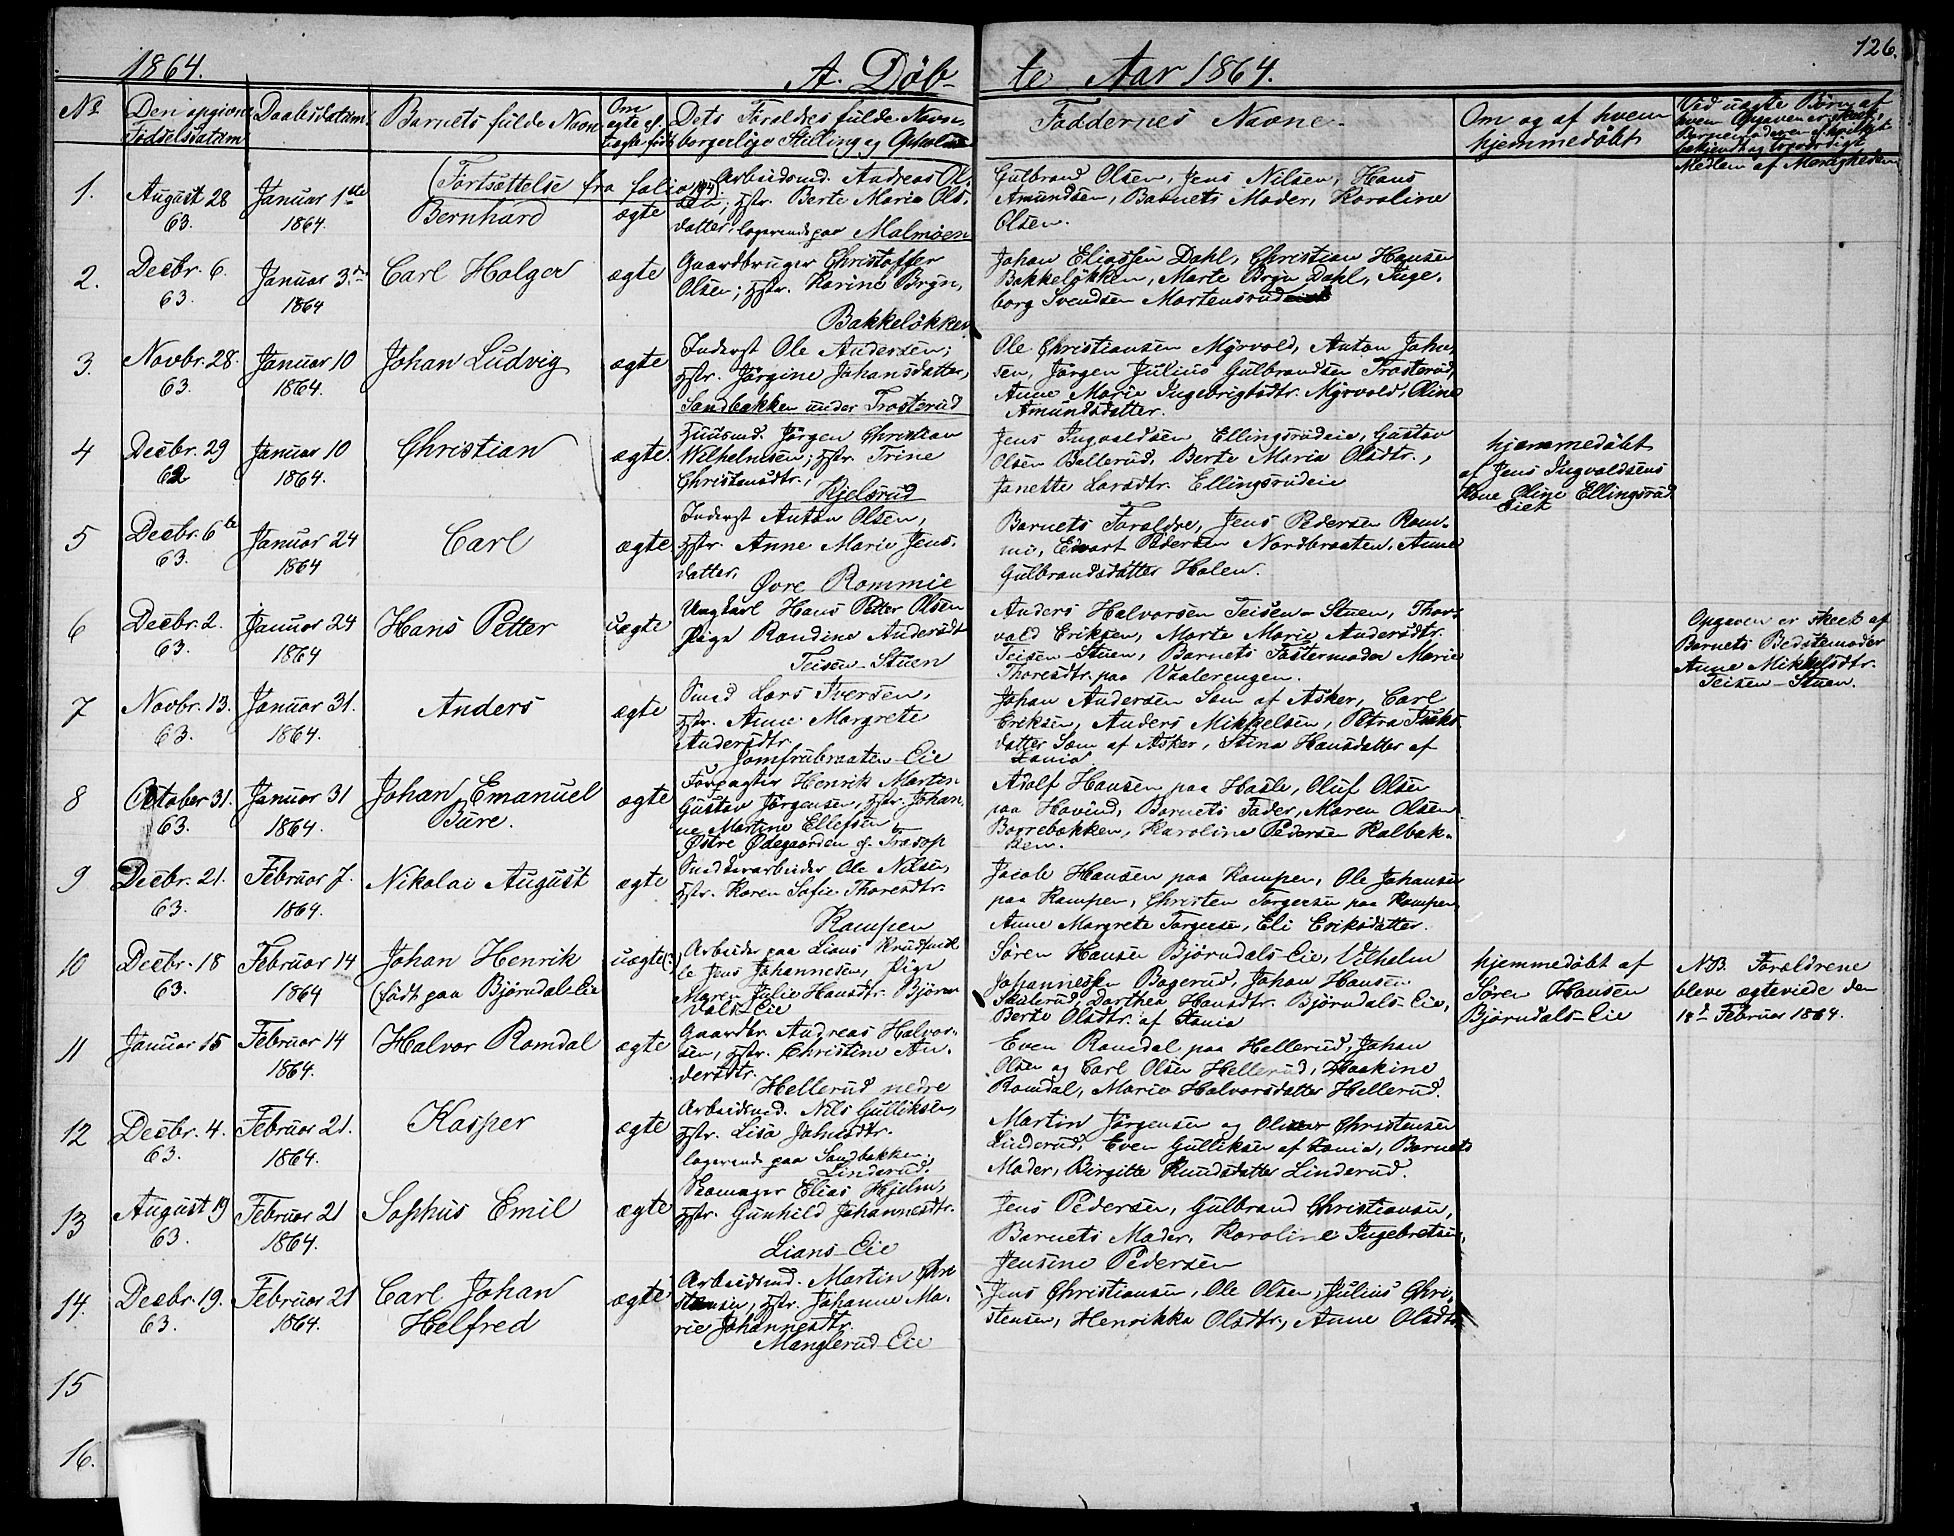 1864.
A. Döb-
te Aar 1864.
126.
No
Den opgivne
Fødselsdatum
Daabsdatum
Barnets fulde Navn
Om
ægte ell.
uægte født
Dets Forældres fulde Navn
borgerlige Stilling og Opholds
Faddernes Navne
Om og af hvem
hjemmedøbt
Ved uægte Børn af
hvem Opgaven er skeet,
bekjendt og troværdigt
Medlem af Menigheden
(Fortsættelse fra folio 104)
1.
August 28
63.
Januar 1ste
1864.
Bernhard
ægte
Arbeidsmd. Andreas Ol-
sen; Hstr. Berte Maria Ols-
datter, logerende paa Malmöen
Gulbrand Olsen, Jens Nilsen, Hans
Amundsen, Barnets Moder, Karoline
Olsen.
2.
Decbr. 6.
63.
Januar 3die
1864
Carl Holger
ægte
Gaardbruger Christoffer
Olsen; Hstr. Karine Bryn,
Bakkeløkken
Johan Eliassen Dahl, Christian Hansen
Bakkeløkken, Marte Bryn Dahl, Inge-
borg Svendsen Mortensrud
3.
Novbr. 28.
63.
Januar 10
1864.
Johan Ludvig
ægte
Inderst Ole Andersen;
Hstr. Jørgine Johansdatter,
Sandbakken under Trosterud
Ole Christiansen Myrvold, Anton John-
sen, Jørgen Julius Gulbrandsen Trosterud,
Anne Marie Ingebrigtsdtr. Myrvold, Oline
Amundsdatter.
4
Decbr. 29
62
Januar 10
1864.
Christian
ægte
Huusmd. Jørgen Christian
Wilhelmsen; Hstr. Trine
Christensdtr.,
Kjelsrud
Jens Ingvaldsen Ellingsrudeie, Gustav
Olsen Ballerud, Berte Maria Olsdtr.,
Janette Larsdtr. Ellingsrudeie
hjemmedøbt
af Jens Ingvaldsens
Kone Oline Ellingsrud
Eiet
5
Decbr. 6te
63.
Januar 24
1864
Carl
ægte
Inderst Anton Olsen,
Hstr. Anne Marie Jens-
datter,
Øvre Rommie
Barnets Forældre, Jens Pedersen Rom-
mi, Edvart Pedersen Nordbraaten, Anne
Gulbrandsdatter Holen.
6
Decbr. 2.
63.
Januar 24
1864
Hans Petter
uægte
Ungkarl Hans Petter Olsen
Pige Randine Andersdt
Teisen-Stuen
Anders Halvorsen Teisen-Stuen, Thor-
vald Eriksen, Marte Marie Andersdtr.
Teisen-Stuen, Barnets Fastermoder Marie
Thoresdtr. paa Vaalerengen.
Opgaven er skeet af
Barnets Bedstemoder
Anne Mikkelsdtr.
Teisen-Stuen.
7
Novbr. 13.
63.
Januar 31.
1864.
Anders
ægte
Smed Lars Iversen,
Hstr. Anne Margrete
Andersdtr.
Jomfrubraaten-Eie
Johan Andersen Sem af Asker, Carl
Eriksen, Anders Mikkelsen, Petra
datter Sem af Asker, Stina Hansdatter af
Xania.
8
October 31.
63.
Januar 31
1864.
Johan Emanuel
Bure.
ægte
Forpagter Henrik Morten
Gustav Jørgensen, Hstr. Johan-
ne Martine Ellefsen
Østre Ødegaarden
Adolf Hansen paa Hasle, Oluf Olsen
paa Hovind, Barnets Fader, Maren Olsen
Borrebakken, Karoline Pedersen Kalbak-
ken.
9
Decbr. 21.
63.
Februar 7.
1864.
Nikolai August
ægte
Snedkerarbeider Ole Nilsen,
Hstr. Karen Sofie Thoresdtr.
Kampen
Jacob Hansen paa Kampen, Ole Johansen
paa Kampen, Christen Torgersen paa Kampen
Anne Margrete Torgersen, Eli Eriksdatter.
10
Decbr. 18
63.
Februar 14
1864
Johan Henrik
(født paa Bjørndal-Eie
uægte(?)
Arbeider paa Lians
Jens Johannesen, Pige
Maren Julie Hansdtr. Bjørn-
dals-Eie
Søren Hansen Bjørndals-Eie, Vilhelm
Johannesen Bogerud, Johan Hansen
Dorthea Hansdtr. Bjørndals-Eie,
Berte Olsdtr. af Xania
hjemmedøbt af
Søren Hansen
Bjørndals-Eie
NB. Forældrene
bleve ægteviede den
18d Februar 1864.
11
Januar 15
Februar 14
1864.
Halvor Romdal
ægte
Gaardbr. Andreas Halvor-
sen, Hstr. Christine An-
dersdtr.
Hellerud nedre
Even Romdal paa Hellerud, Johan
Olsen og Carl Olsen Hellerud, Haakine
Romdal, Marie Halvorsdatter Hellerud.
12
Decbr. 4.
63.
Februar 21.
1864.
Kasper
ægte
Arbeidsmd. Nils Gulliksen,
Hstr. Lisa Johnsdtr.
logerende paa Sandbakken,
Linderud.
Martin Jørgensen og Christensen
Linderud, Even Gulliksen af Xania, Barnets
Moder, Birgitte Knudsdatter Linderud.
13
August 19
63.
Februar 21
1864.
Sophus Emil
ægte
Skomager Elias Hjelm,
Hstr. Gunhild Johannesdtr.
Lians-Eie
Jens Pedersen, Gulbrand Christiansen,
Barnets Moder, Karoline Ingebretsen,
Jensine Pedersen
14.
Decbr. 19.
63.
Februar 21
1864.
Carl Johan
Helfred
ægte
Arbeidsmd. Martin Chri
stensen, Hstr. Johanne Ma-
rie Johannesdtr.
Manglerud-Eie
Jens Christiansen, Ole Olsen, Julius Chri-
stensen, Henrikka Olsdtr., Anne Olsdtr
15
16.